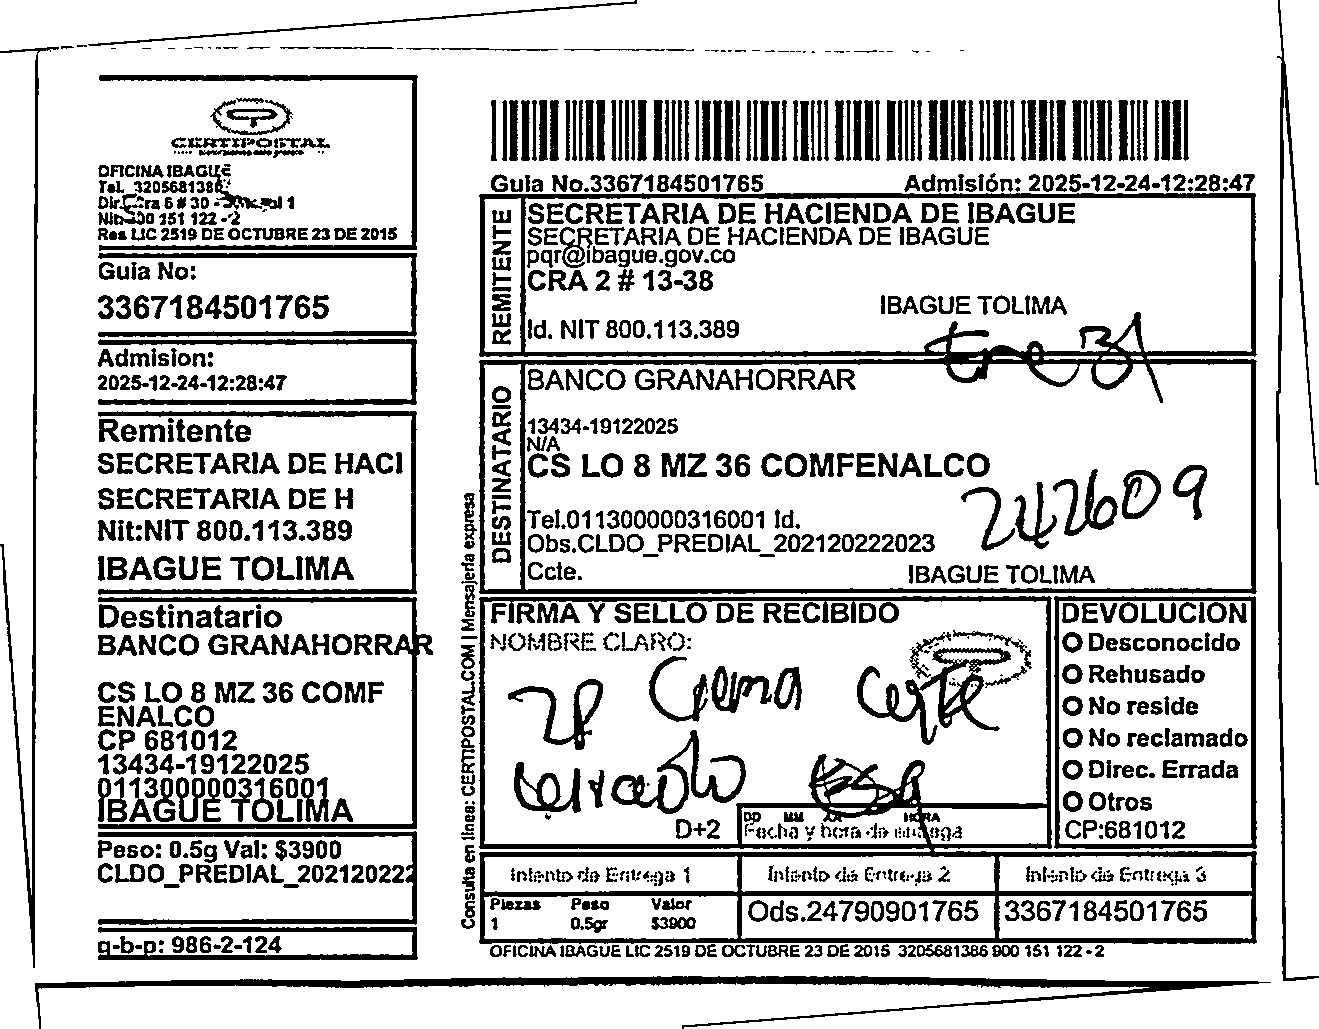 CERTIPOSTAL
OFICINA IBAGUE
Tel. 3205681386
Dir. Cra 6 # 30 - 1
Nit 900 151 122 - 2
Res LIC 2519 DE OCTUBRE 23 DE 2015
Guia No:
3367184501765
Admision:
2025-12-24-12:28:47
Remitente
SECRETARIA DE HACI
SECRETARIA DE H
Nit:NIT 800.113.389
IBAGUE TOLIMA
Destinatario
BANCO GRANAHORRAR
CS LO 8 MZ 36 COMF
ENALCO
CP 681012
13434-19122025
011300000316001
IBAGUE TOLIMA
Peso: 0.5g Val: $3900
CLDO_PREDIAL_202120222
q-b-p: 986-2-124
Consulta en linea: CERTIPOSTAL.COM | Mensajeria expresa
Guia No.3367184501765 Admisión: 2025-12-24-12:28:47
REMITENTE
SECRETARIA DE HACIENDA DE IBAGUE
SECRETARIA DE HACIENDA DE IBAGUE
pqr@ibague.gov.co
CRA 2 # 13-38
IBAGUE TOLIMA
Id. NIT 800.113.389
Ene 31
DESTINATARIO
BANCO GRANAHORRAR
13434-19122025
N/A
CS LO 8 MZ 36 COMFENALCO
242609
Tel.011300000316001 Id.
Obs.CLDO_PREDIAL_202120222023
Ccte.
IBAGUE TOLIMA
FIRMA Y SELLO DE RECIBIDO
NOMBRE CLARO:
2P Crema
D+2
DD MM AA HORA
Fecha y hora de entrega
DEVOLUCION
Desconocido
Rehusado
No reside
No reclamado
Direc. Errada
Otros
CP:681012
Intento de Entrega 1 Intento de Entrega 2 Intento de Entrega 3
Piezas Peso Valor
1 0.5gr $3900
Ods.24790901765 3367184501765
OFICINA IBAGUE LIC 2519 DE OCTUBRE 23 DE 2015 3205681386 900 151 122 - 2